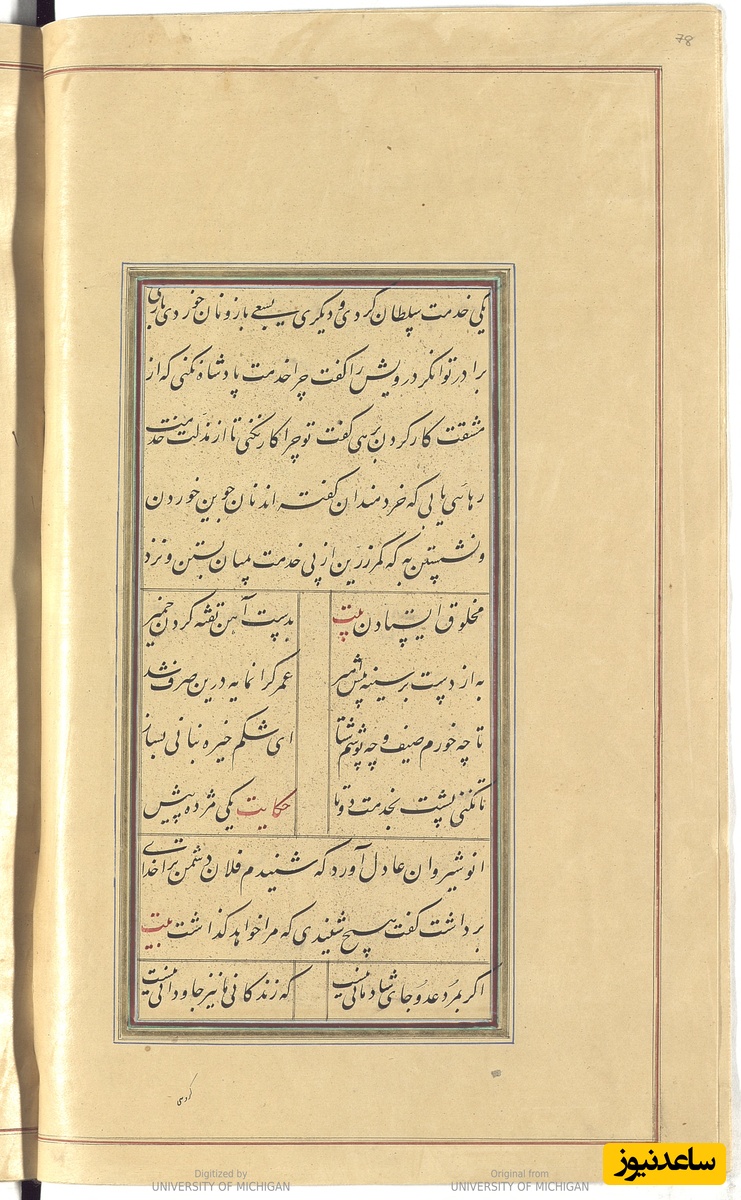 78
یکی خدمت سلطان کردی و دیگری بسعی بازو نان خوردی باری
برادر توانکر درویش را کفت چرا خدمت پادشاه نکنی که از
مشقت کار کردن برهی کفت تو چرا کار نکنی تا از مذلت خدمت
رهائی یابی که خردمندان کفته اند نان جوین خوردن
و نشستن به که کمر زرین از پی خدمت بمیان بستن و نزد
مخلوق ایستادن بیت بدست آهن تفته کردن خمیر
به از دست بر سینه پیش امیر عمر کرانمایه درین صرف شد
تا چه خورم صیف و چه پوشم شتا ای شکم خیره بنانی بساز
تا نکنی پشت بخدمت دو تا حکایت یکی مژده پیش
انوشیروان عادل آورد که شنیدم فلان دشمن ترا خدای
برداشت کفت هیچ شنیدی که مرا خواهد کذاشت بیت
اکر بمرد عدو جای شادمانی نیست که زندکانی ما نیز جاودانی نیست
ساعدنیوز
Digitized by
UNIVERSITY OF MICHIGAN
Original from
UNIVERSITY OF MICHIGAN